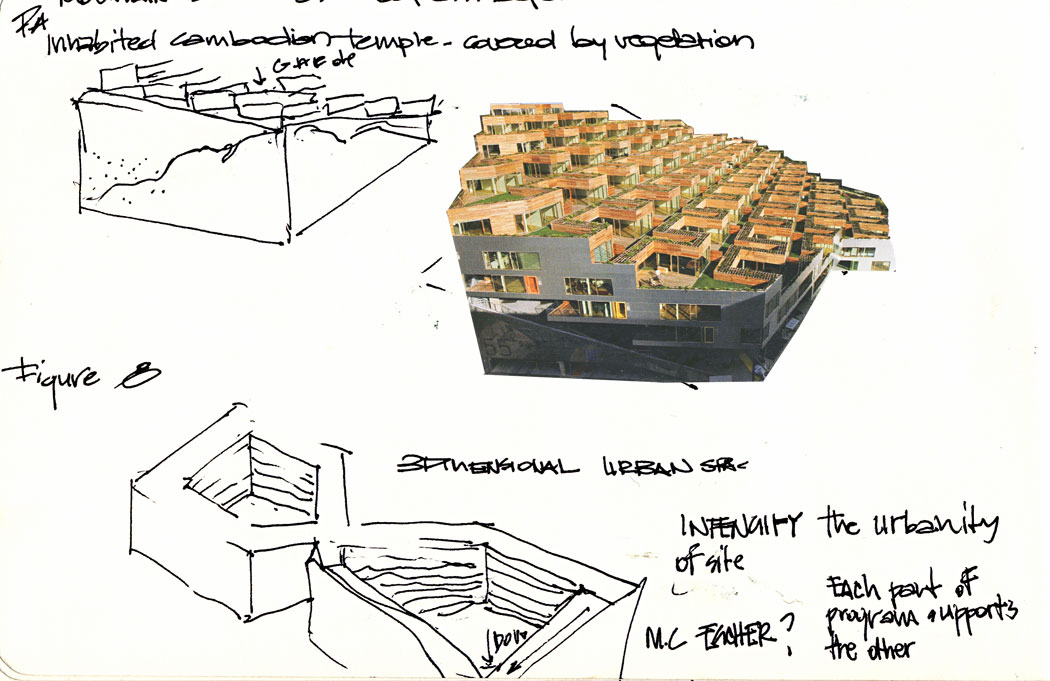 Inhabited cambodian temple - covered by vegetation
Figure 8
3DIMENSIONAL URBAN
INTENSIFY the urbanity
of site
M.C ESCHER?
EAch part of
program supports
the other